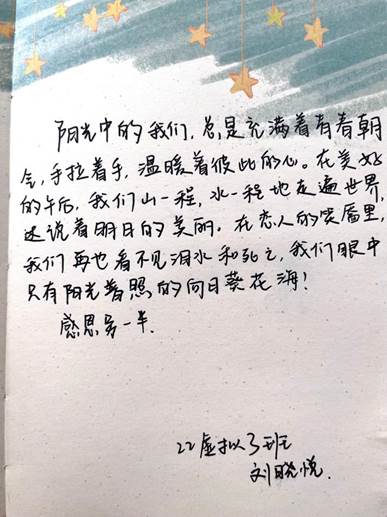 阳光中的我们,总是充满着有着朝
气,手拉着手,温暖着彼此的心。在美好
的午后,我们山一程,水一程地走遍世界,
述说着明日的美丽。在恋人的笑靥里,
我们再也看不见泪水和死亡,我们眼中
只有阳光普照的向日葵花海!
感恩另一半.
22虚拟3班
刘晓悦.